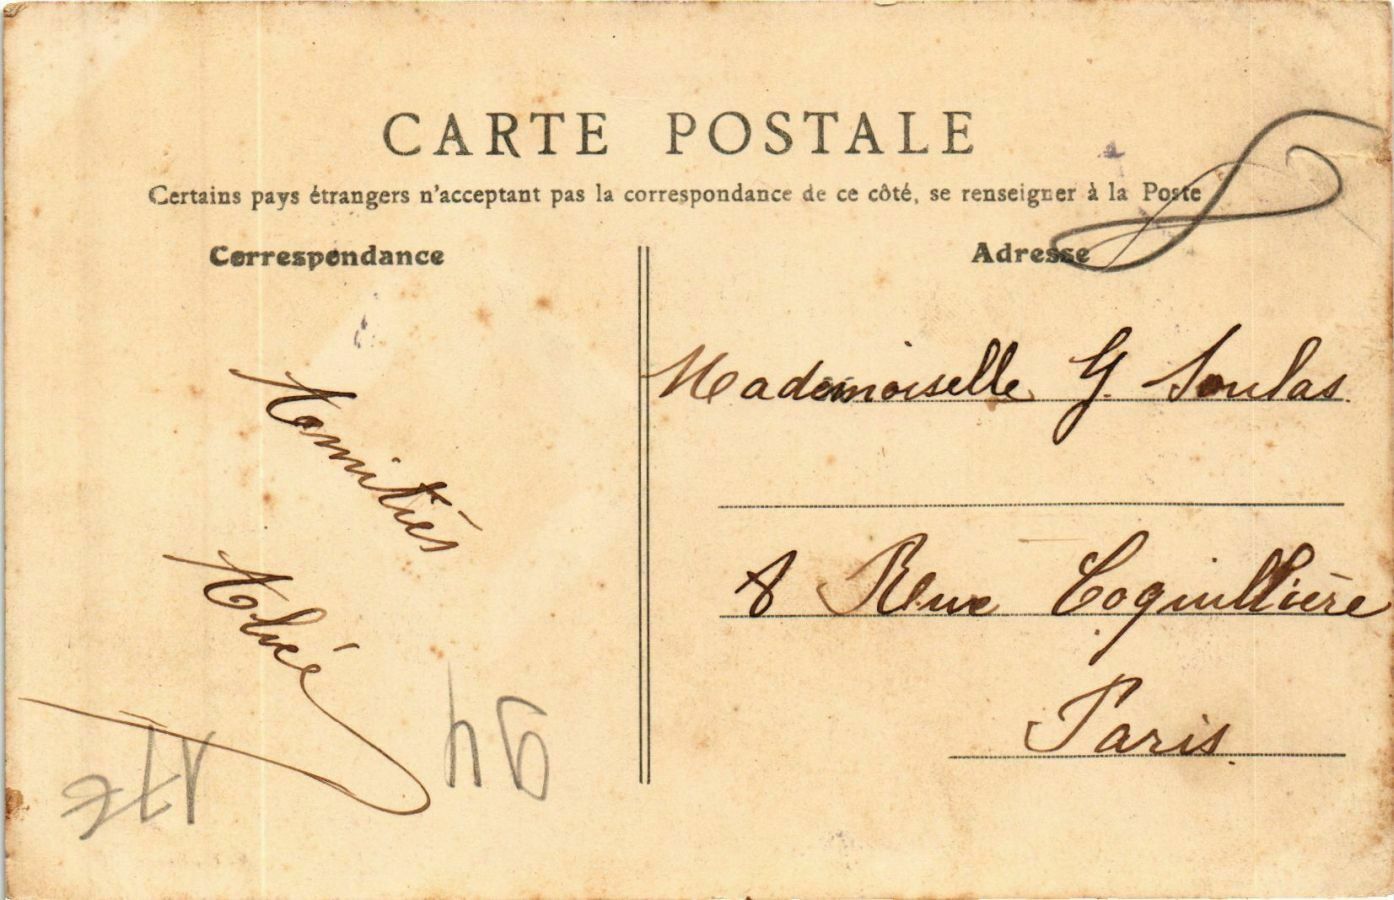 CARTE POSTALE
Certains pays étrangers n'acceptent pas la correspondance de ce côté, se renseigner à la Poste
Correspondance
Adresse
Amitiés
Mademoiselle G. Soulas
8 Rue Coquillière
Paris
94
17€